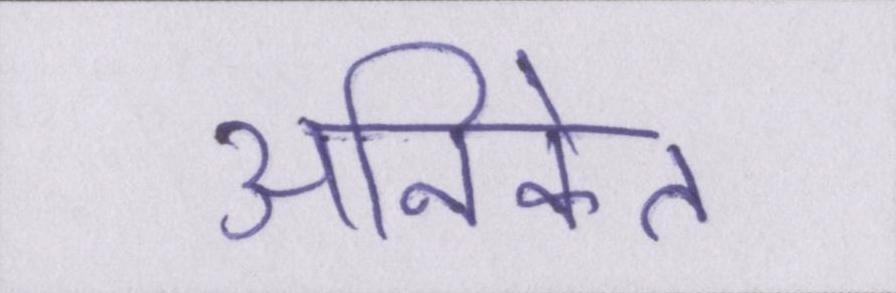 अनिकेत